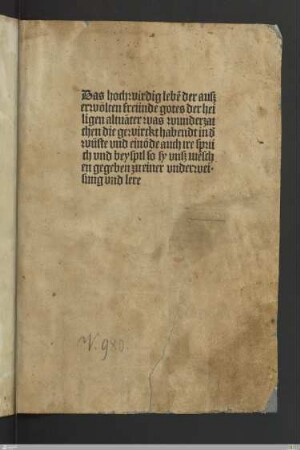 Das hochwirdig lebē der ausz
erwölten freünde gotes der hei
ligen altuäter was wunderzai
chen die gewirckt habendt in d̕
wüste vnd einöde auch ire sprü
ch vnd beyspil so sy vnsz mēsch
en gegeben zu einer vnderwei-
sung vnd lere
N. 980.